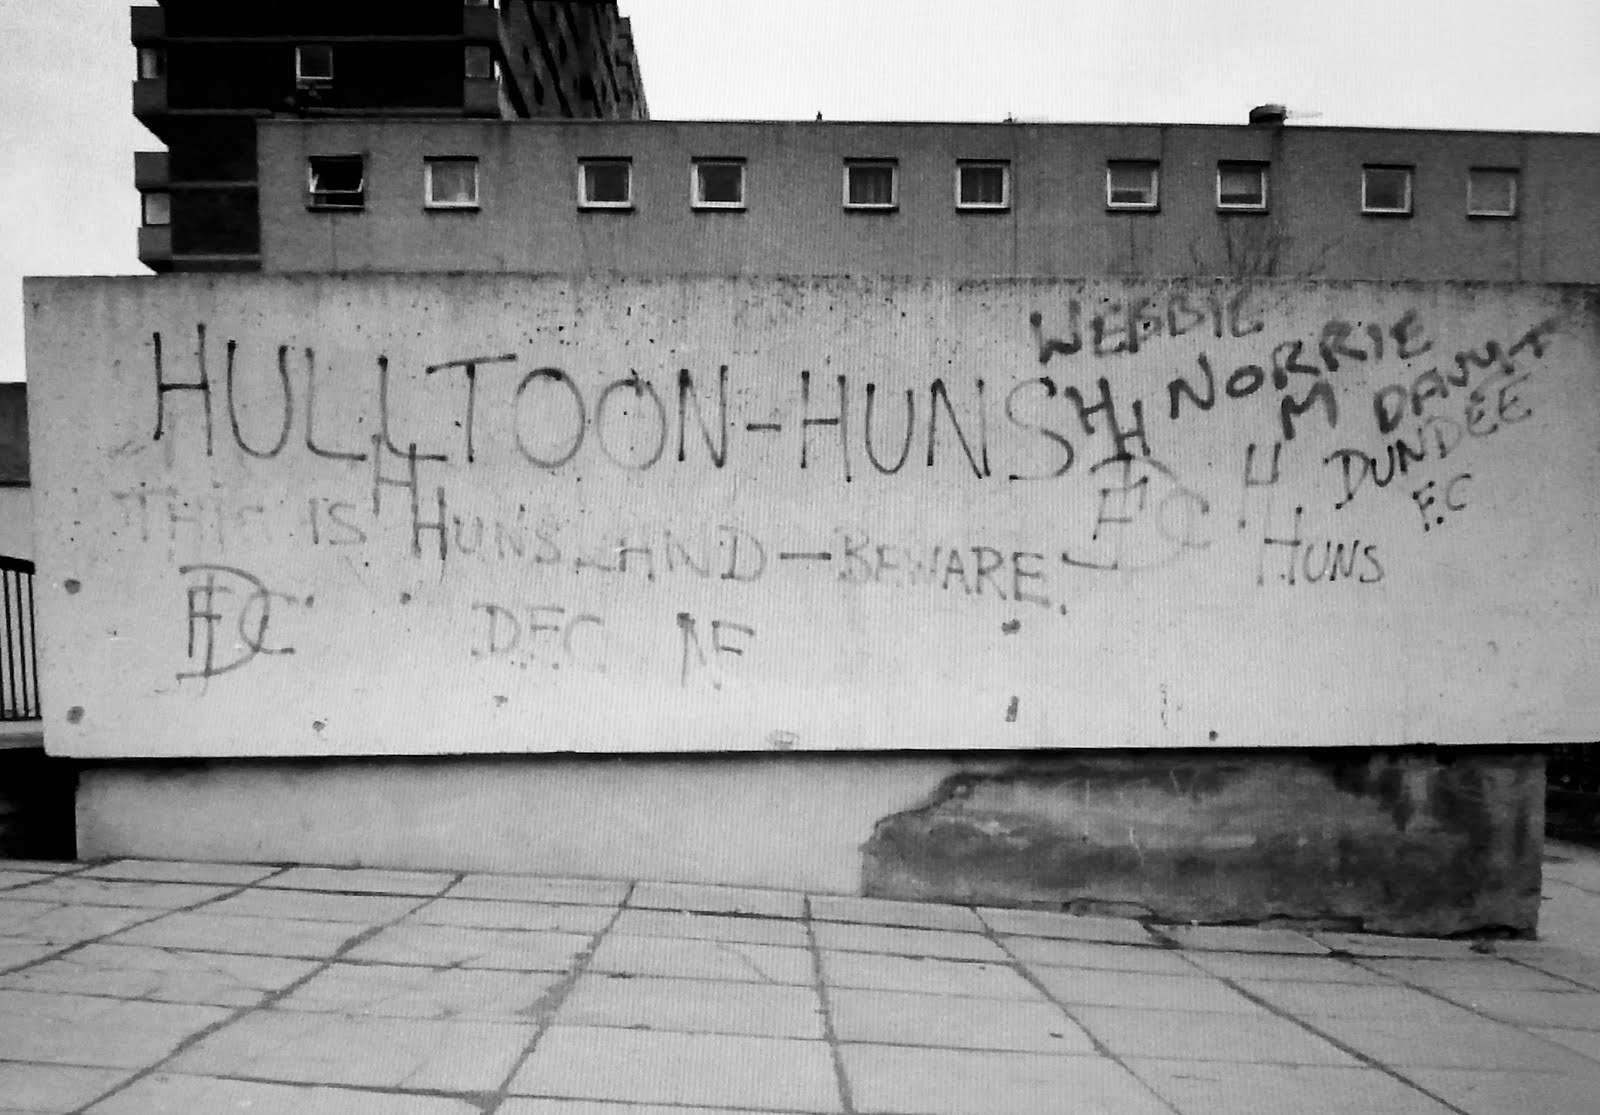 HULLTOON-HUNS
HH
WEBBIE
NORRIE
M
DUNDEE
F.C
THIS IS HUNS LAND - BEWARE.
HH
DFC
HUNS
DFC
D.F.C.